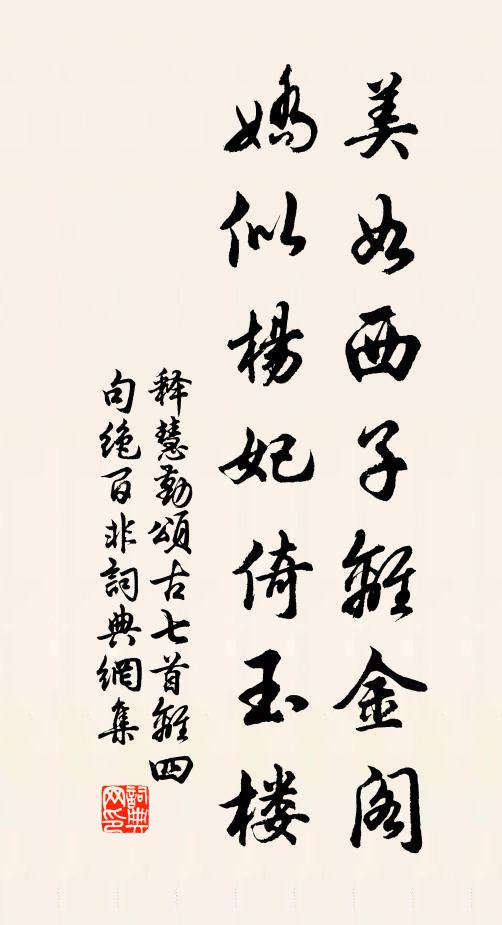 美如西子離金阁
嬌似楊妃倚玉楼
释慧勤頌古七首離四
句绝百非詞典網集
詞典网印